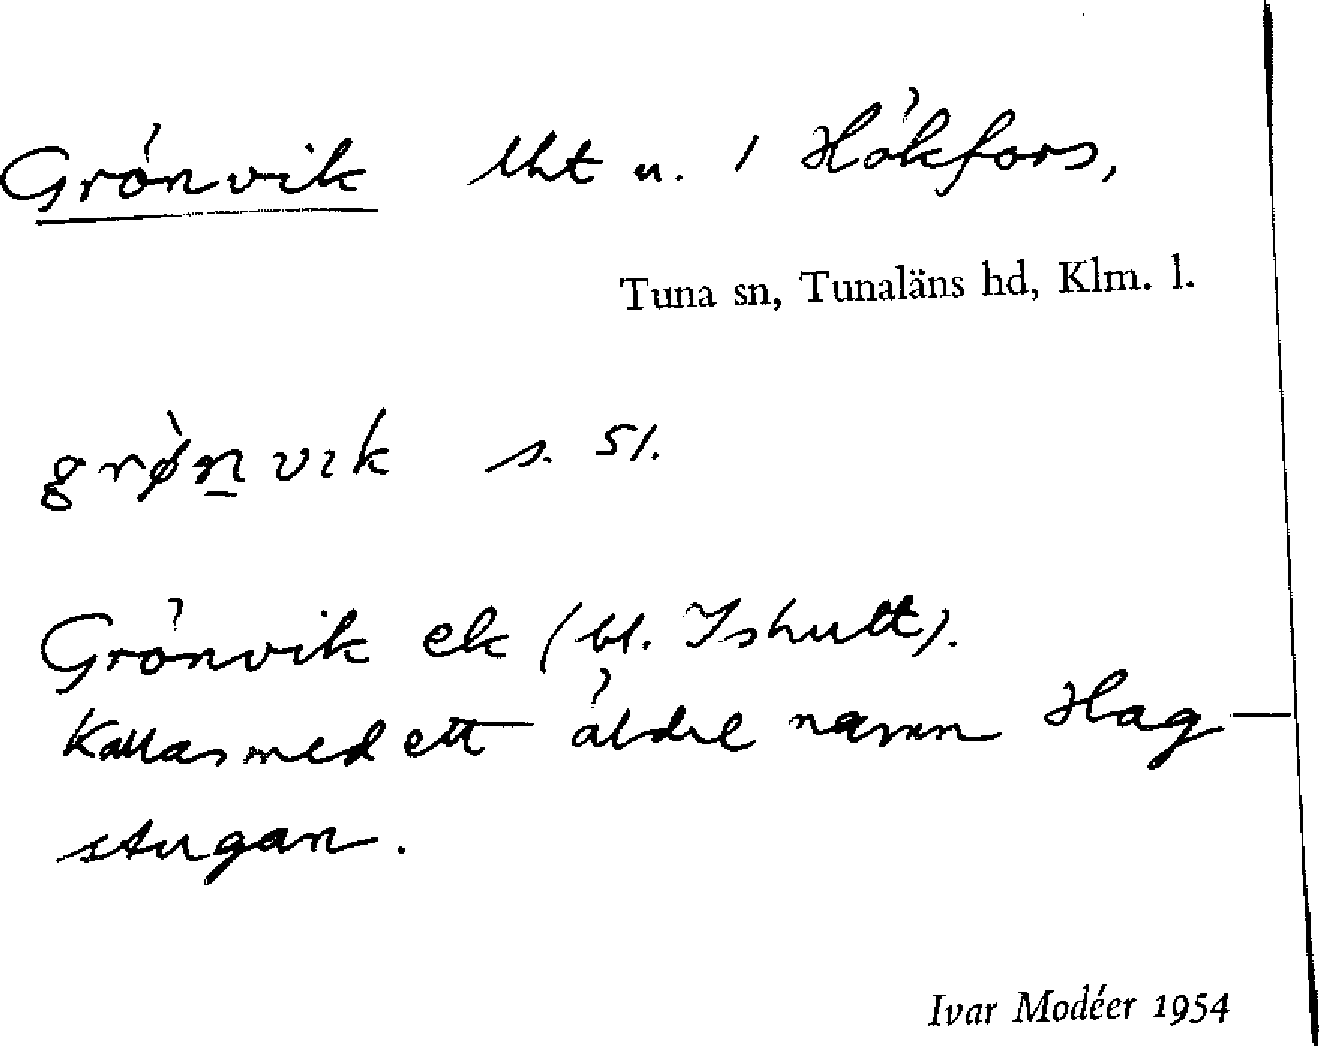 Grönvik lht u. / Hökfors,
Tuna sn, Tunaläns hd, Klm. l.
grø̀n̲vık s. 51.
Grönvik ek (bl. Ishult).
Kallas med ett äldre namn Hag-
stugan.
Ivar Modéer 1954